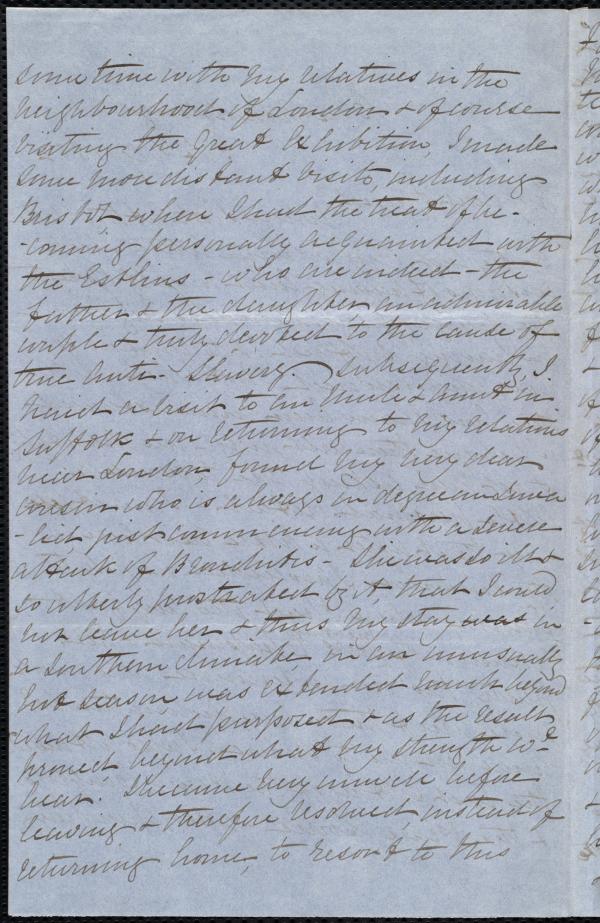 some time with my relatives in the
neighbourhood of London & of course
visiting the Great Exhibition, I made
some more distant visits, including
Bristol where I had the treat of be-
-coming personally acquainted with
the Estlins - who are indeed - the
father & the daughter, an admirable
couple & truly devoted to the cause of
true Anti-Slavery. Subsequently, I
paid a visit to an Uncle & Aunt in
Suffolk & on returning to my relations
near London, found my very dear
cousin who is always in degree an Inva
-lid, just commencing with a severe
attack of Bronchitis - She was so ill &
so utterly prostrated by it, that I could
not leave her & thus my stay was in
a Southern climate in an unusually
hot season was extended much beyond
what I had purposed & as the result
proved, beyond what my strength wd.
bear. I became very unwell before
leaving & therefore resolved, instead of
returning home, to resort to this